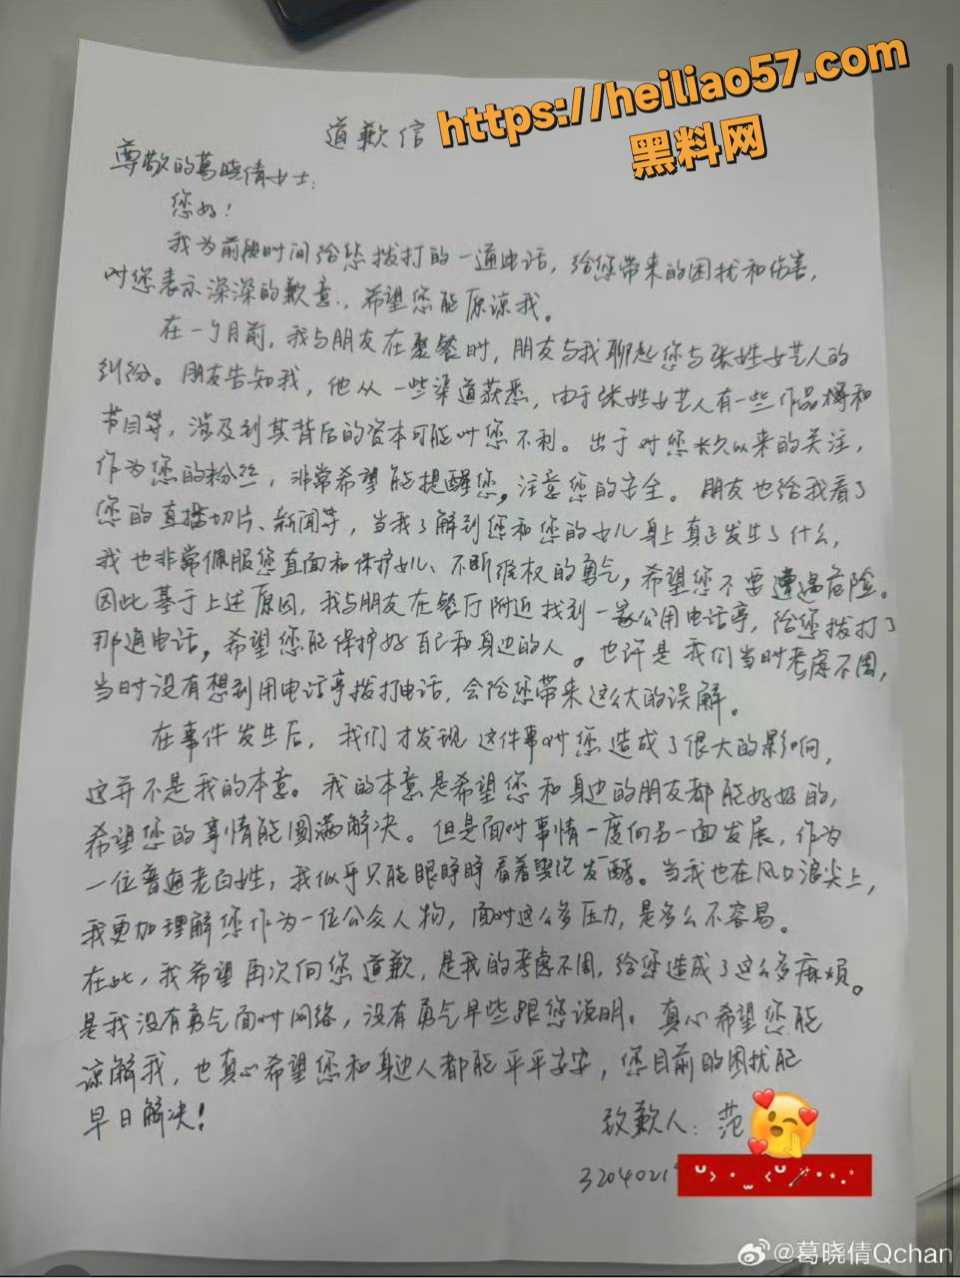 https://heiliao57.com
黑料网
道歉信
尊敬的葛晓倩女士:
您好!
我为前段时间给您拨打的一通电话,给您带来的困扰和伤害,
对您表示深深的歉意.,希望您能原谅我。
在一个月前,我与朋友在聚餐时,朋友与我聊起您与张姓女艺人的
纠纷。朋友告知我,他从一些渠道获悉,由于张姓女艺人有一些作品、综和
节目等,涉及到其背后的资本可能对您不利。出于对您长久以来的关注,
作为您的粉丝,非常希望能提醒您,注意您的安全。朋友也给我看了
您的直播切片、新闻等,当我了解到您和您的女儿身上真正发生了什么,
我也非常佩服您直面和保护女儿、不断维权的勇气,希望您不要遭遇危险。
因此基于上述原因,我与朋友在餐厅附近找到一家公用电话亭,给您拨打了
那通电话,希望您能保护好自己和身边的人。也许是我们当时考虑不周,
当时没有想到用电话亭拨打电话,会给您带来这么大的误解。
在事件发生后,我们才发现这件事对您造成了很大的影响,
这并不是我的本意。我的本意是希望您和身边的朋友都能好好的,
希望您的事情能圆满解决。但是面对事情一度向另一面发展,作为
一位普通老百姓,我似乎只能眼睁睁看着舆论发酵。当我也在风口浪尖上,
我更加理解您作为一位公众人物,面对这么多压力,是多么不容易。
在此,我希望再次向您道歉,是我的考虑不周,给您造成了这么多麻烦。
是我没有勇气面对网络,没有勇气早些跟您说明。真心希望您能
谅解我,也真心希望您和身边人都能平平安安,您目前的困扰能
早日解决!
致歉人:范
3204021
@葛晓倩Qchan